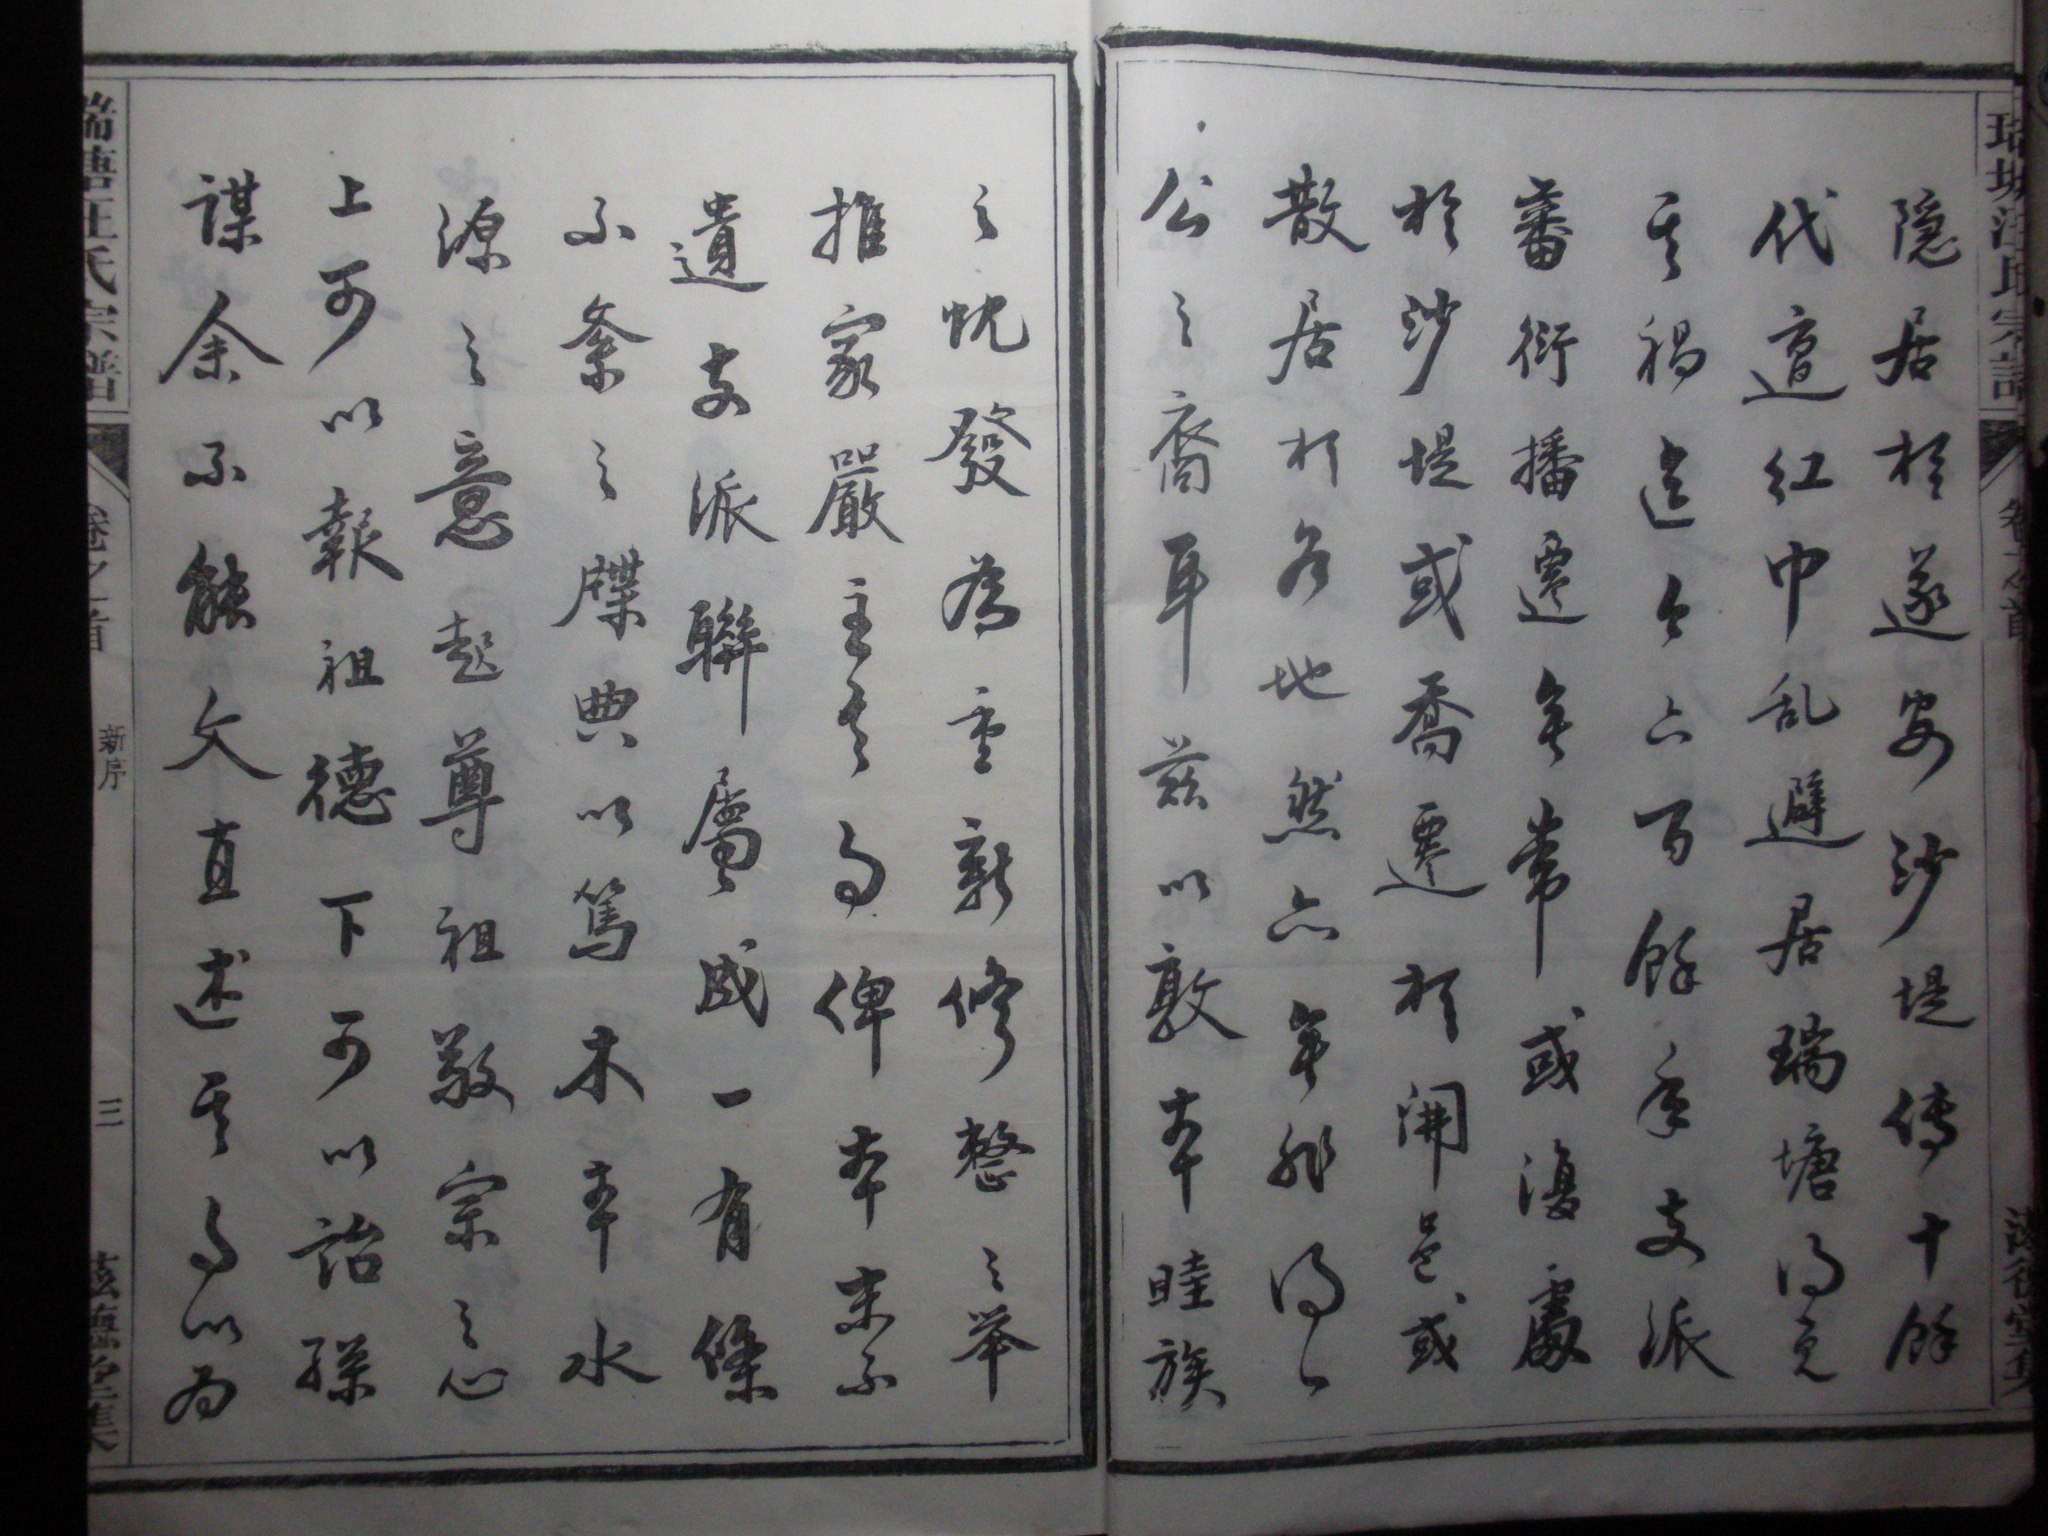 隐居於遂安沙堤傳十餘
代遭红巾乱避居瑞塘得免
其祸迄今六百餘年支派
蕃衍播遷無常或復處
於沙堤或喬遷於開邑或
散居於各地然六年非得
公之裔耳茲以敦本睦族
之忱發為重新修整之举
推家嚴主其事俾本末不
遺支派聯屬成一有條
不紊之牒典以篤木本水
源之意起尊祖敬宗之心
上可以報祖德下可以詒孫
謀余不能文直述其事以為
瑞塘汪氏宗譜
卷之首
新序
三